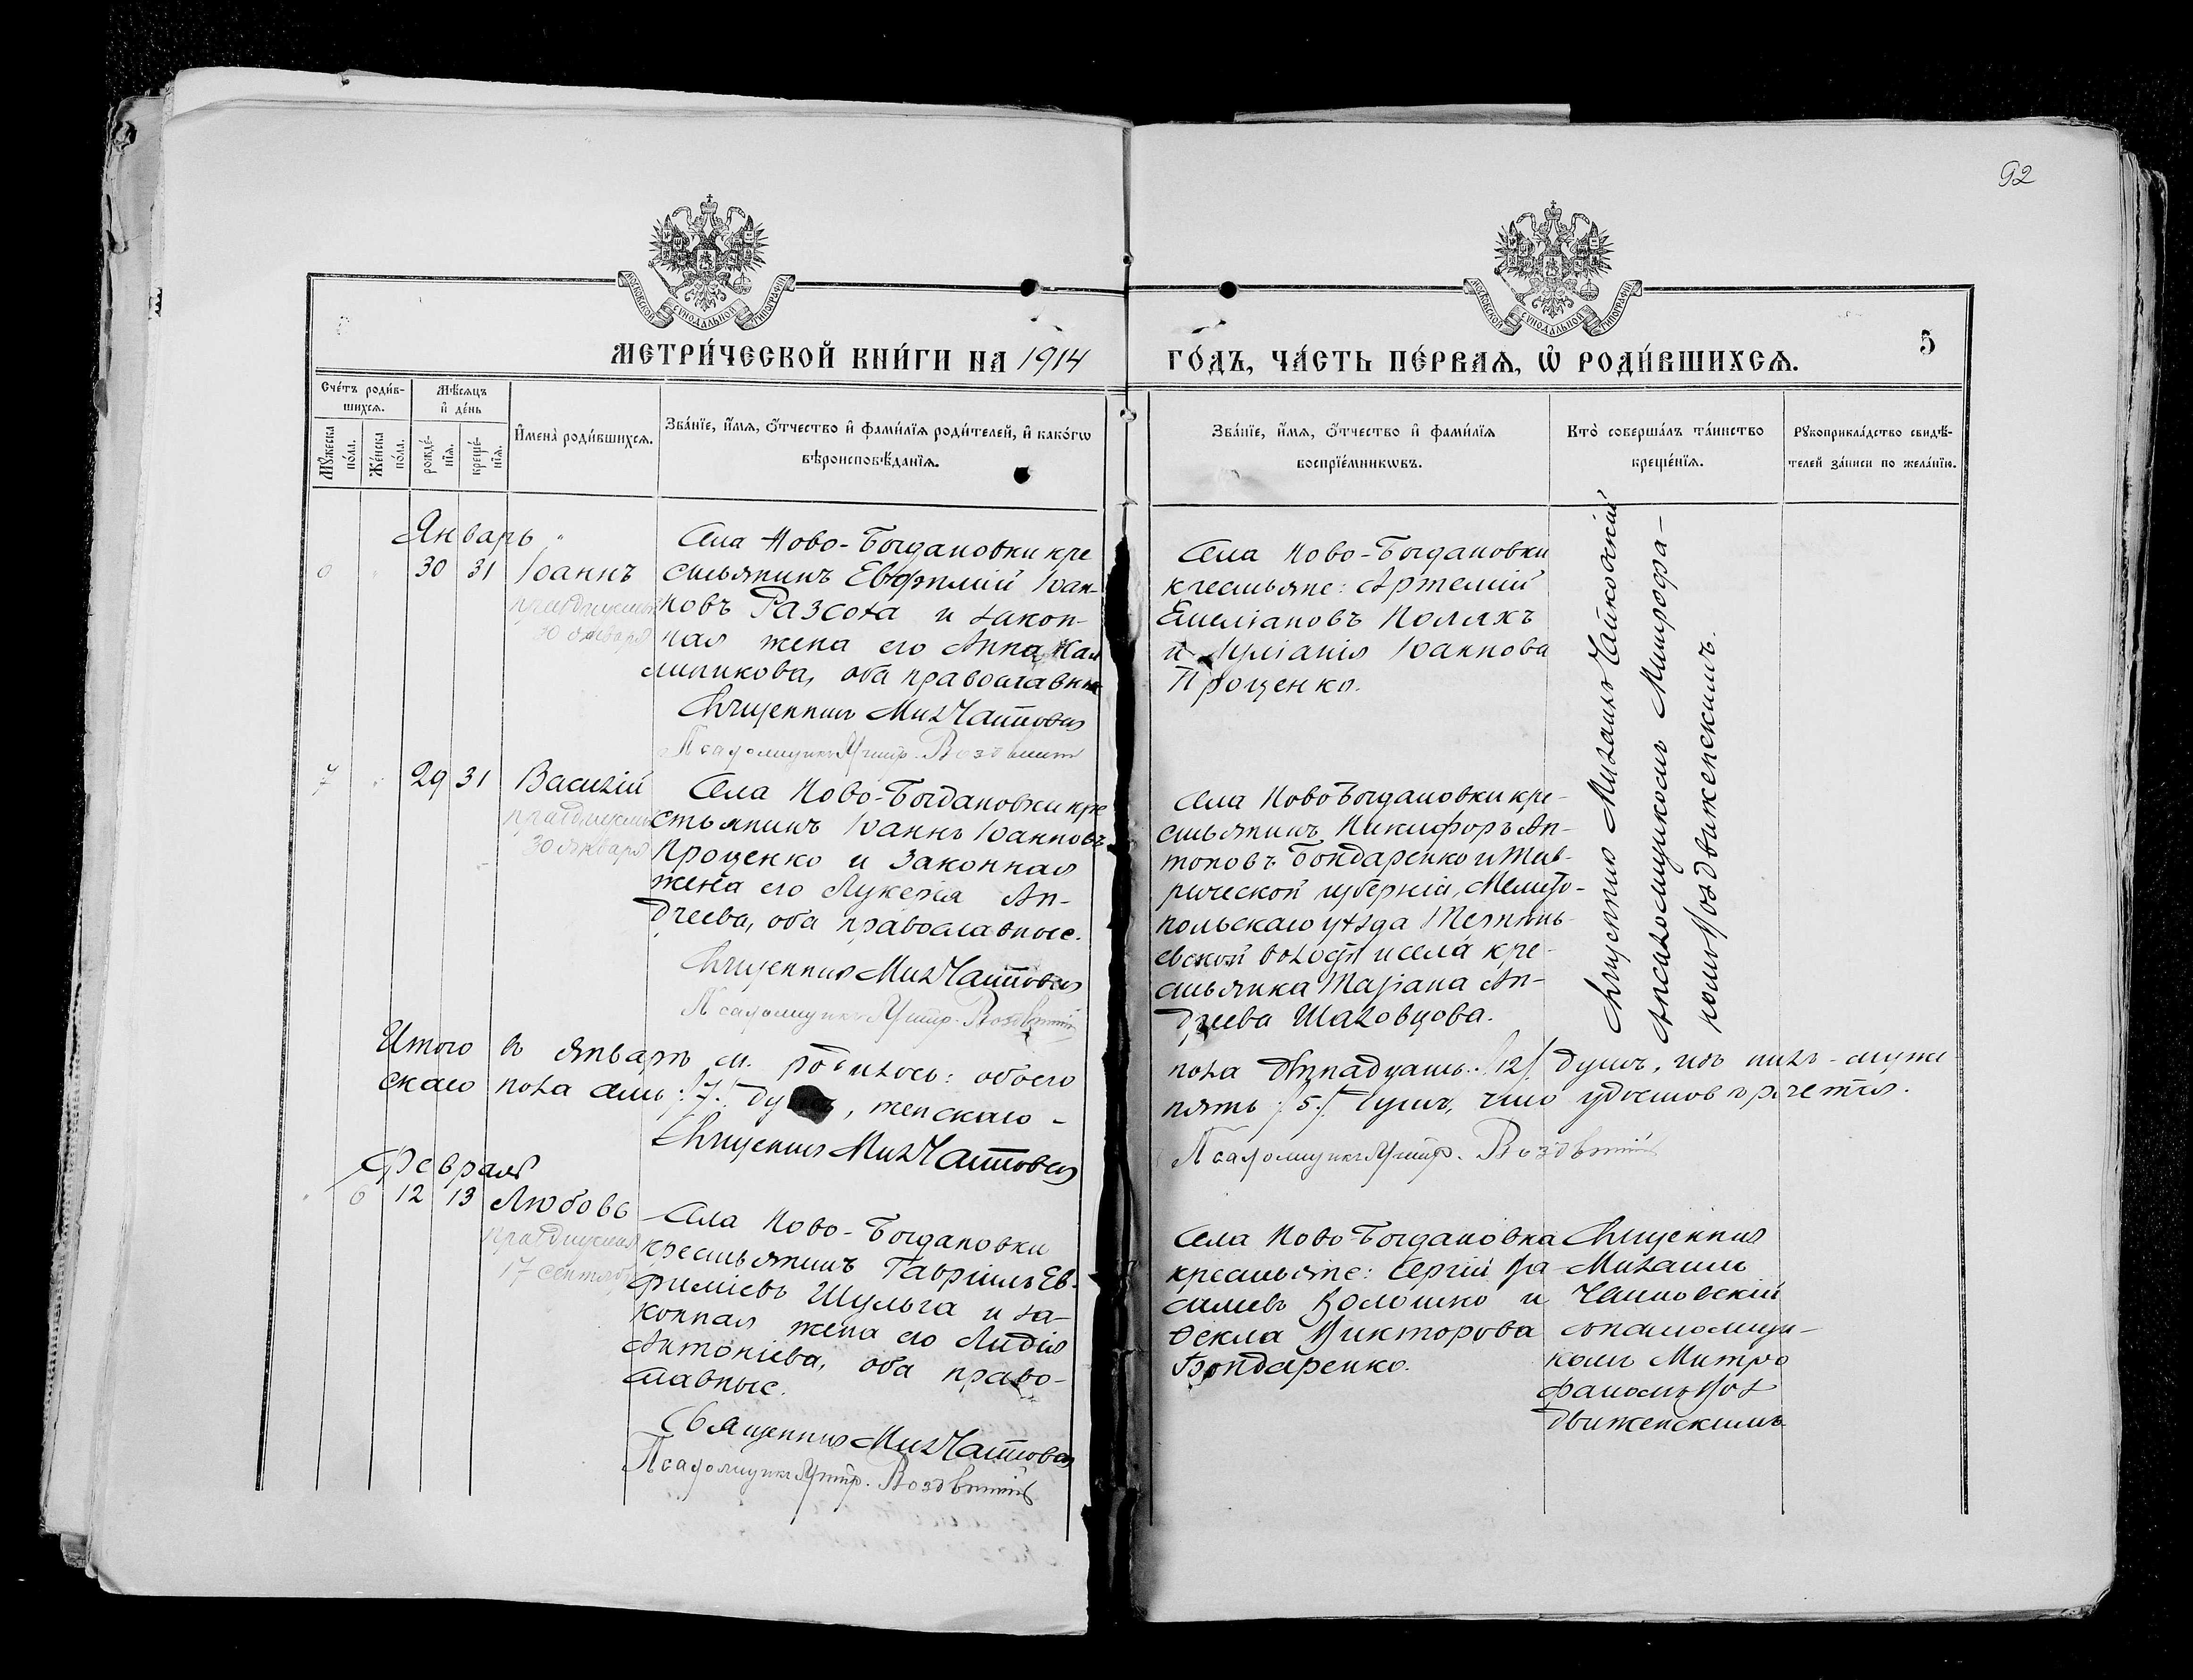 92
МОСКОВСКОЙ СѴНОДАЛЬНОЙ ТИПОГРАФІИ
МОСКОВСКОЙ СѴНОДАЛЬНОЙ ТИПОГРАФІИ
МЕТРИ́ЧЕСКОЙ КНИ́ГИ НА 1914
ГО́ДЪ, ЧА́СТЬ ПЕ́РВАѦ, Ѽ РОДИ́ВШИХСѦ.
5
Сче́тъ роди́в-
шихсѧ.
Мѣ́сѧцъ
и҆ де́нь
Мꙋ́жеска
по́ла.
Же́нска
по́ла.
рожде́-
нїѧ.
креще́-
нїѧ.
И҆мена̀ роди́вшихсѧ.
Зва́нїе, и҆́мѧ, ѻ҆́тчество и҆ фами́лїѧ роди́телей, и҆ како́гѡ
вѣроисповѣ́данїѧ.
Зва́нїе, и҆́мѧ, ѻ҆́тчество и҆ фами́лїѧ
воспрїе́мникѡвъ.
Кто̀ соверша́лъ та́инство
креще́нїѧ.
Рꙋкоприкла́дство свидѣ́-
телей за́писи по жела́нїю.
Январь
30 31 Іоаннъ
празднуемый
30 января
Села Ново-Богдановки кре
стьянинъ Евфимій Іоан-
новъ Разсоха и закон-
ная жена его Анна
оба православные
Священникъ Мих Чайковскій
Псаломщикъ Митр. Воздвиженскій
Села Ново-Богдановки
крестьяне: Артемій
Емеліановъ Полякъ
и Іуліанія Іоаннова
Проценко.
Священникъ Михаилъ Чайковскій
съ псаломщикомъ Митрофа-
номъ Воздвиженскимъ.
7 29 31 Василій
празднуемый
30 января
Села Ново-Богдановки кре
стьянинъ Іоаннъ Іоанновъ
Проценко и законная
жена его Лукерія Ан-
дреева, оба православные.
Священникъ Мих Чайковскій
Псаломщикъ Митр. Воздвиженскій
Села Ново Богдановки кре-
стьянинъ Никифоръ Ан-
тоновъ Бондаренко и Тав-
рической губерніи, Мелито-
польскаго уѣзда Терпѣнь-
евской волости и села кре-
стьянка Маріана Ан-
дреева Шаховцова.
Итого въ январѣ м. родилось: обоего
пола двѣнадцать /12/ душъ, изъ нихъ - муже
скаго пола семь /7/ душъ, женскаго -
пять /5/ душъ, что удостовѣряется.
Священникъ Мих Чайковскій
Псаломщикъ Митр. Воздвиженскій
Февраль
6 12 13 Любовь
празднуемая
17 сентября
Села Ново-Богдановки
крестьянинъ Гавріилъ Ев-
фиміевъ Шульга и за-
конная жена его Лидія
Антоніева, оба право-
славные.
Священникъ Мих Чайковскій
Псаломщикъ Митр. Воздвиженскій
Села Ново-Богдановка
крестьяне: Сергій Ва
силіевъ Волошко и
Ѳекла Викторова
Бондаренко.
Священникъ
Михаилъ
Чайковскій
съ псаломщи-
комъ Митро
фаномъ Воз
движенскимъ